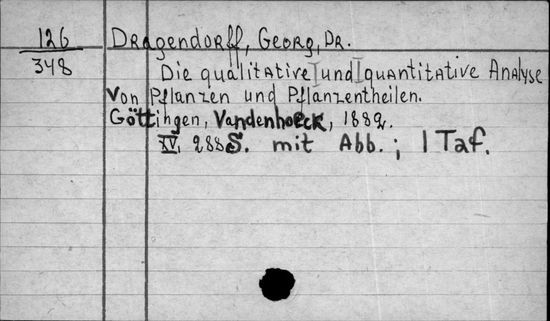 126 Dragendorff, Georg, Dr.
348
Die qualitative und quantitative Analyse
von Pflanzen und Pflanzentheilen.
Göttingen, Vandenhoeck, 1882.
XV, 288 S. mit Abb.; 1 Taf.